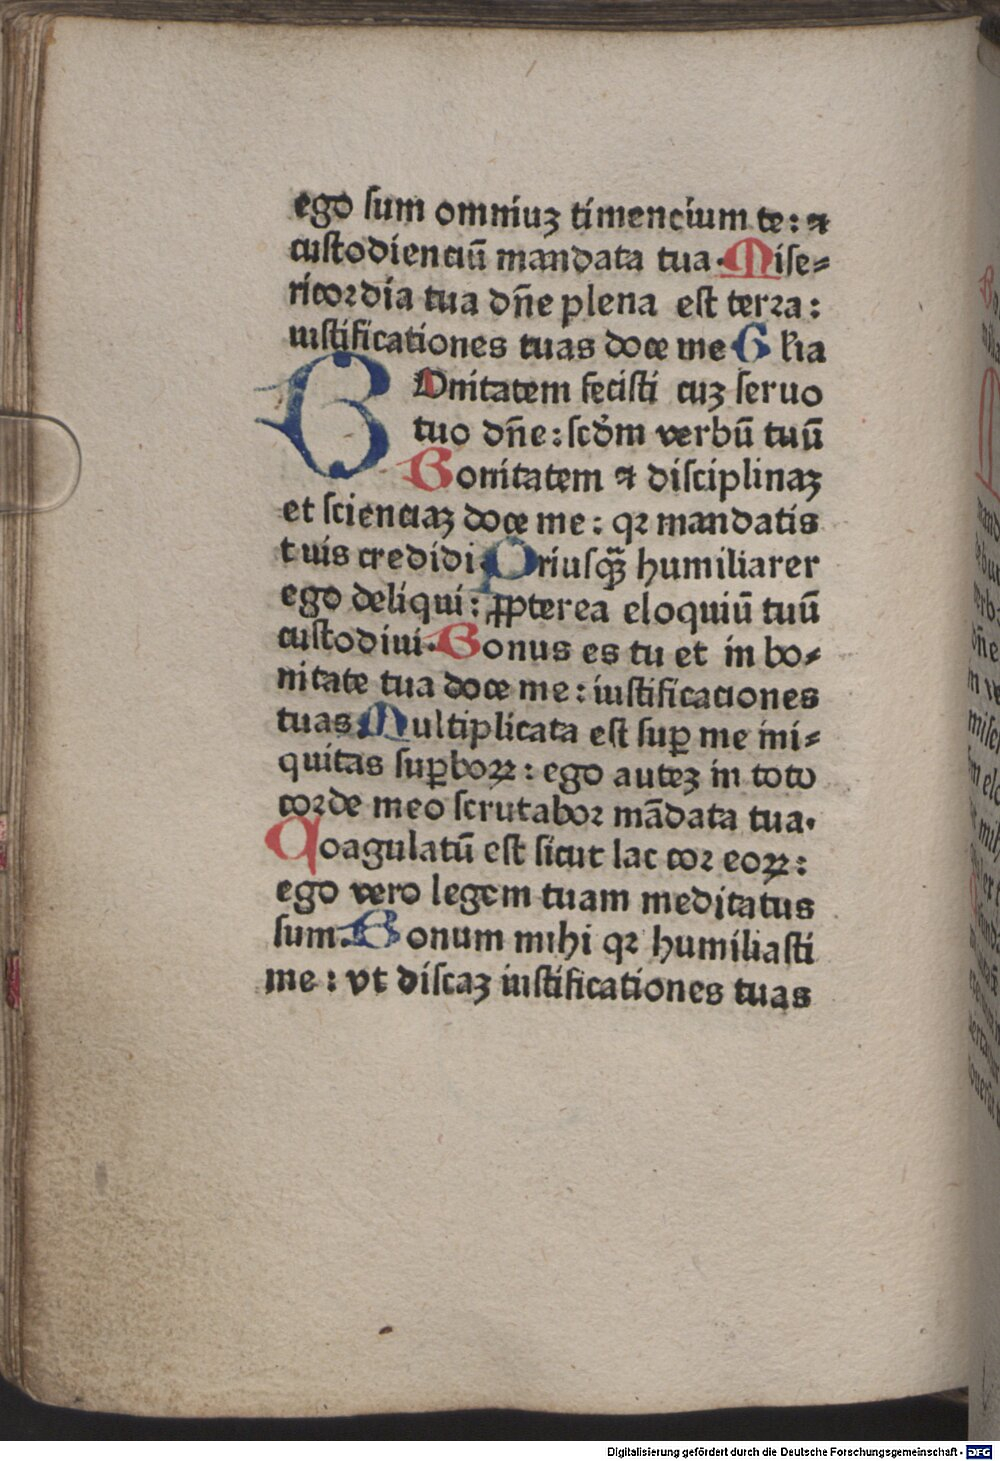 ego sum omniuꝫ timencium te: ⁊
custodienciū mandata tua. Mise-
ricordia tua dn̄e plena est terra:
iustificationes tuas doce me Gl̄ia
BOnitatem fecisti cuꝫ seruo
tuo dn̄e: scd̄m verbū tuū
Bonitatem ⁊ disciplinaꝫ
et scienciaꝫ doce me: qꝛ mandatis
tuis credidi Priusqꝫ̄ humiliarer
ego deliqui: ꝓpterea eloquiū tuū
custodiui. Bonus es tu et in bo-
nitate tua doce me: iustificaciones
tuas Multiplicata est suꝑ me ini-
quitas suꝑboꝝ: ego auteꝫ in toto
corde meo scrutabor mādata tua.
Coagulatū est sicut lac cor eoꝝ:
ego vero legem tuam meditatus
sum. Bonum mihi qꝛ humiliasti
me: vt discaꝫ iustificationes tuas
Digitalisierung gefördert durch die Deutsche Forschungsgemeinschaft - DFG